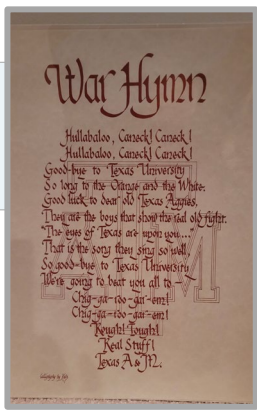 War Hymn
Hullabaloo, Caneck! Caneck!
Hullabaloo, Caneck! Caneck!
Good-bye to Texas University
So long to the Orange and the White.
Good luck to dear old Texas Aggies,
They are the boys that show the real old fight.
"The eyes of Texas are upon you...."
That is the song they sing so well,
So good-bye to Texas University
We're going to beat you all to—
Chig-ga-roo-gar-em!
Chig-ga-roo-gar-em!
Rough! Tough!
Real Stuff!
Texas A & M.